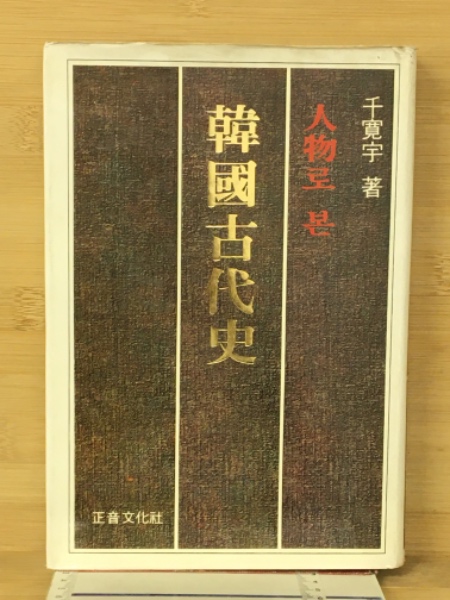 千寬宇 著
人物로 본
韓國古代史
正音文化社